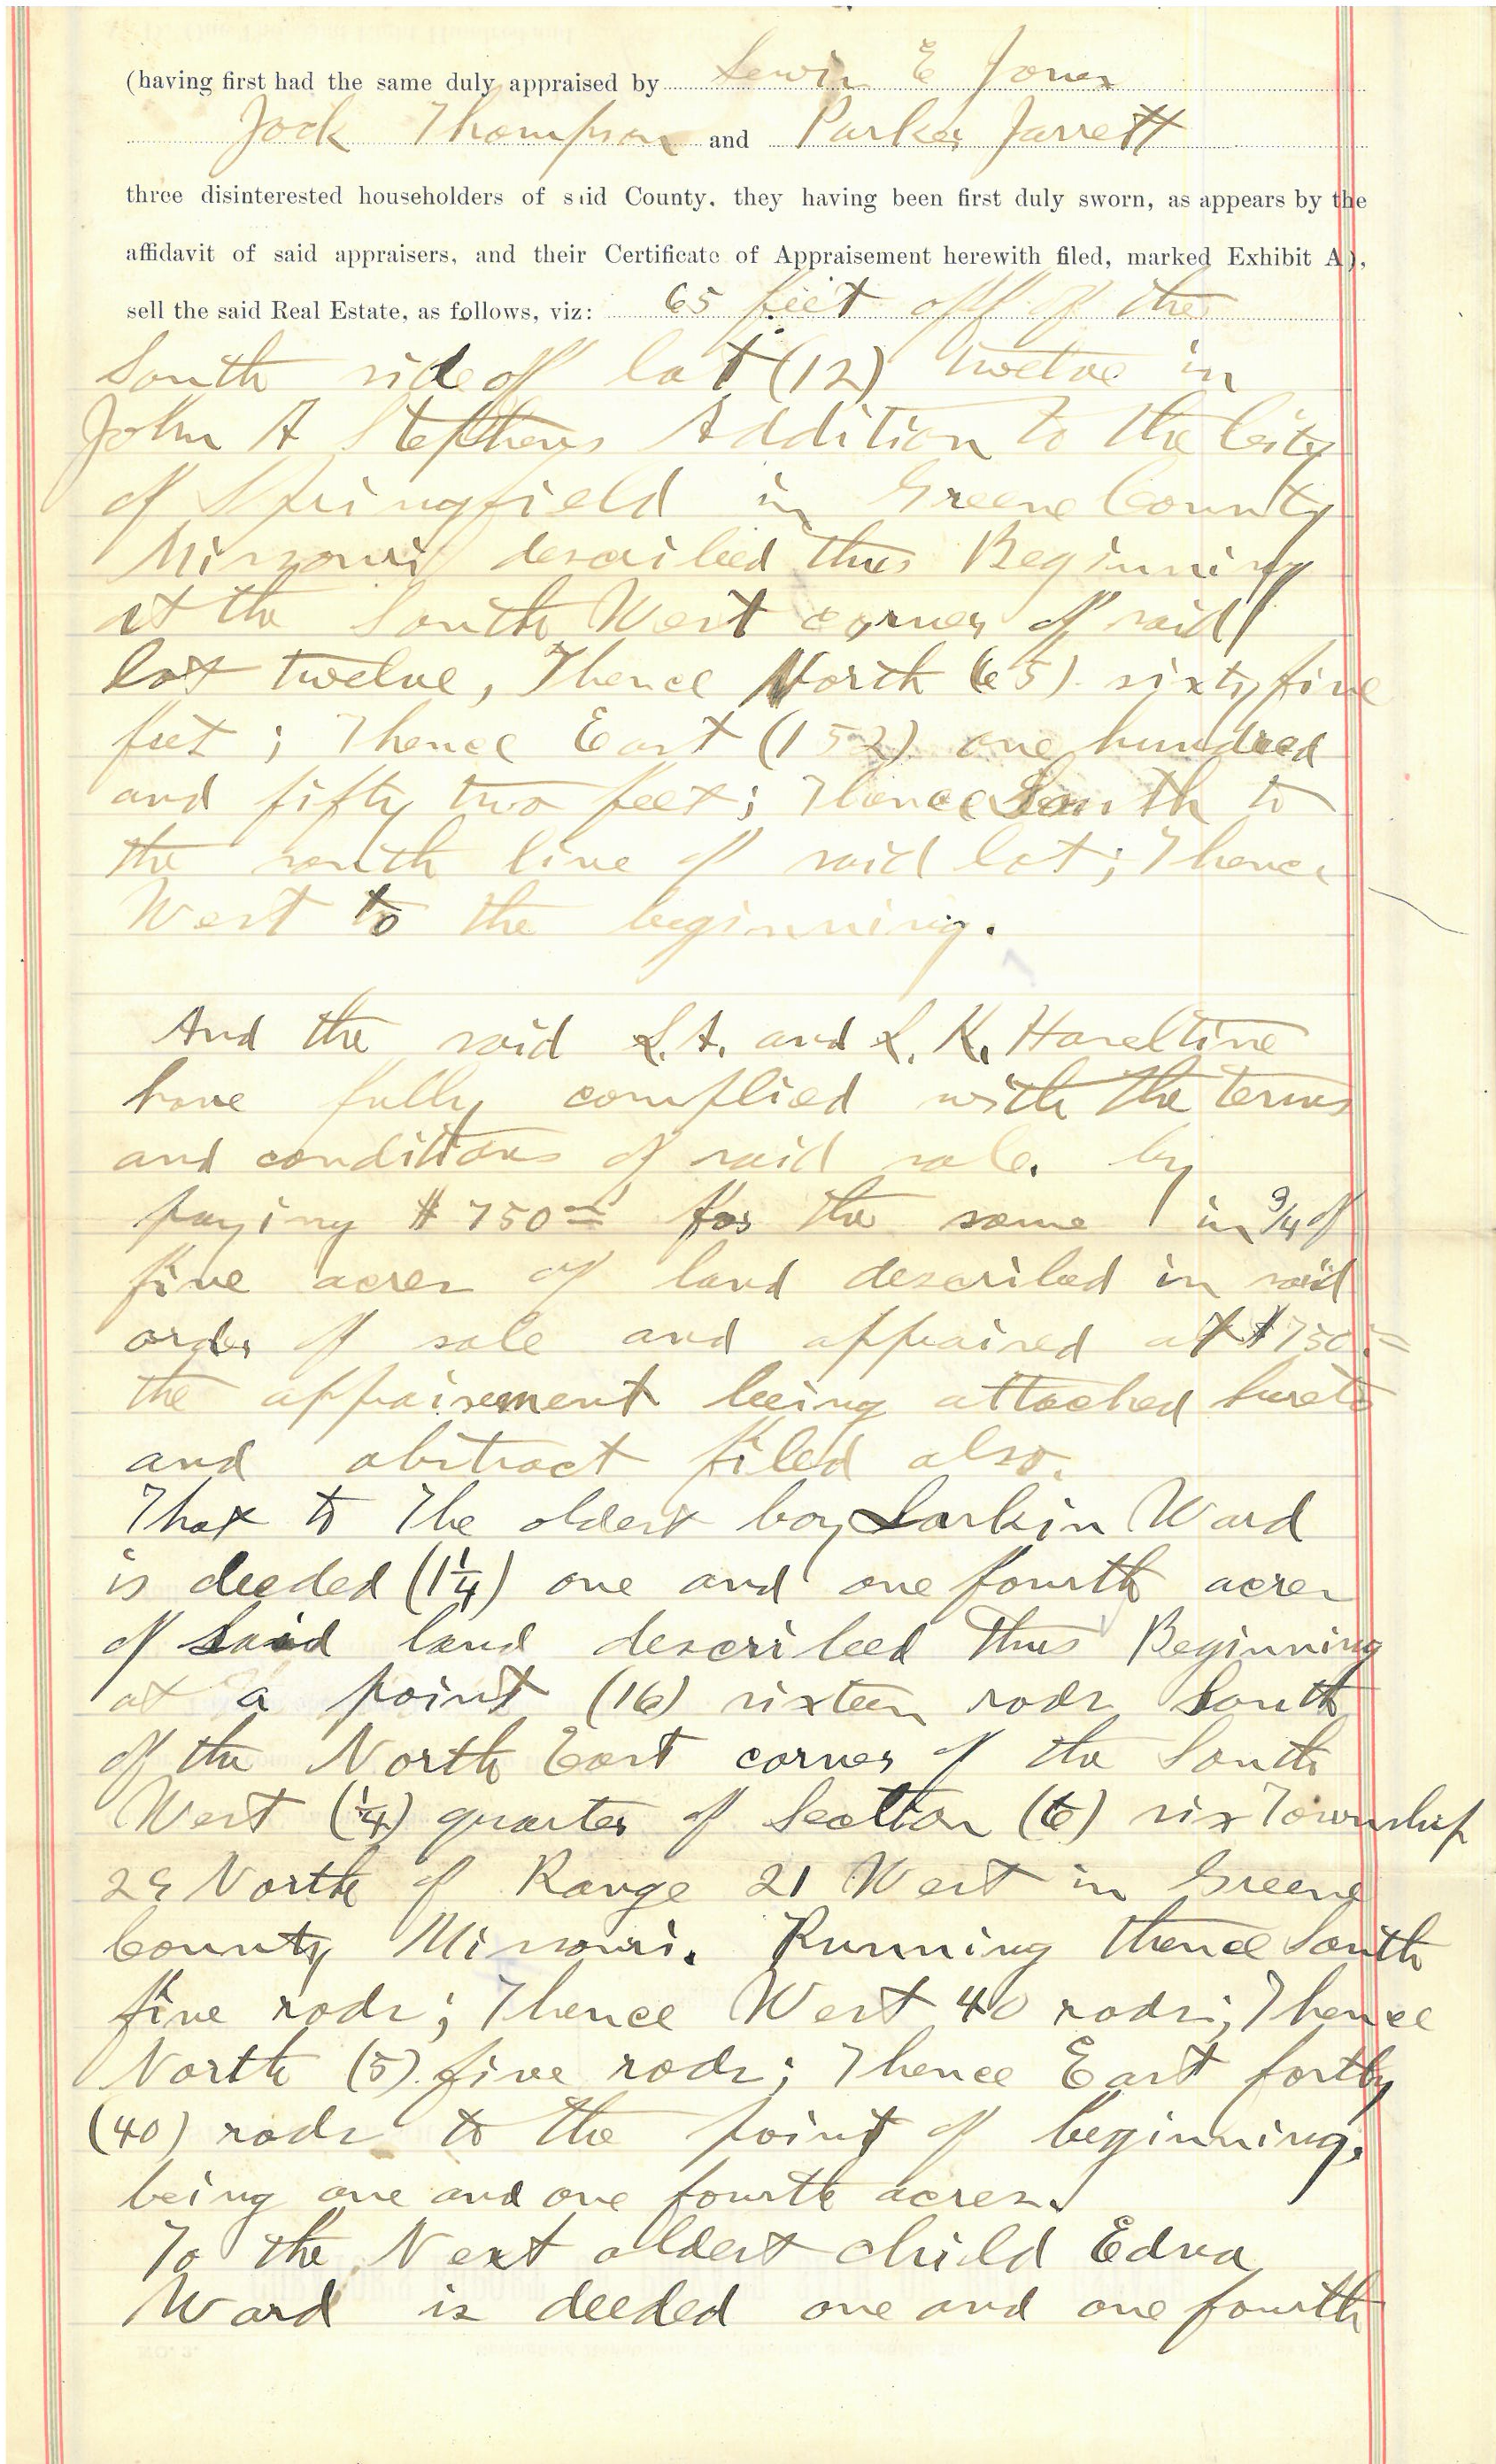 (having first had the same duly appraised by Lewis E Jones
Jock Thompson and Parker Jarrett
three disinterested householders of said County, they having been first duly sworn, as appears by the
affidavit of said appraisers, and their Certificate of Appraisement herewith filed, marked Exhibit A),
sell the said Real Estate, as follows, viz: 65 feet off of the
South side of lot (12) twelve in
John A Stephens Addition to the City
of Springfield in Greene County
Missouri described thus Beginning
at the South West corner of said
lot twelve, Thence North (65) sixty five
feet; Thence East (152) one hundred
and fifty two feet; Thence South to
the south line of said lot; Thence
West to the beginning.
And the said S.A. and L. K. Haseltine
have fully complied with the terms
and conditions of said sale. by
paying $750 00 for the same in 3/4 of
five acres of land described in said
order of sale and appraised at $750 00
the appraisement being attached hereto
and abstract filed also.
That to The oldest boy Larkin Ward
is deeded (1 1/4) one and one fourth acres
of said land described thus Beginning
at a point (16) sixteen rods South
of the North East corner of the South
West (1/4) quarter of Section (6) six Township
29 North of Range 21 West in Greene
County Missouri. Running thence South
five rods; Thence West 40 rods; Thence
North (5) five rods; Thence East fortty
(40) rods to the point of beginning.
being one and one fourth acres.
To the Next oldest child Edna
Ward is deeded one and one fourth